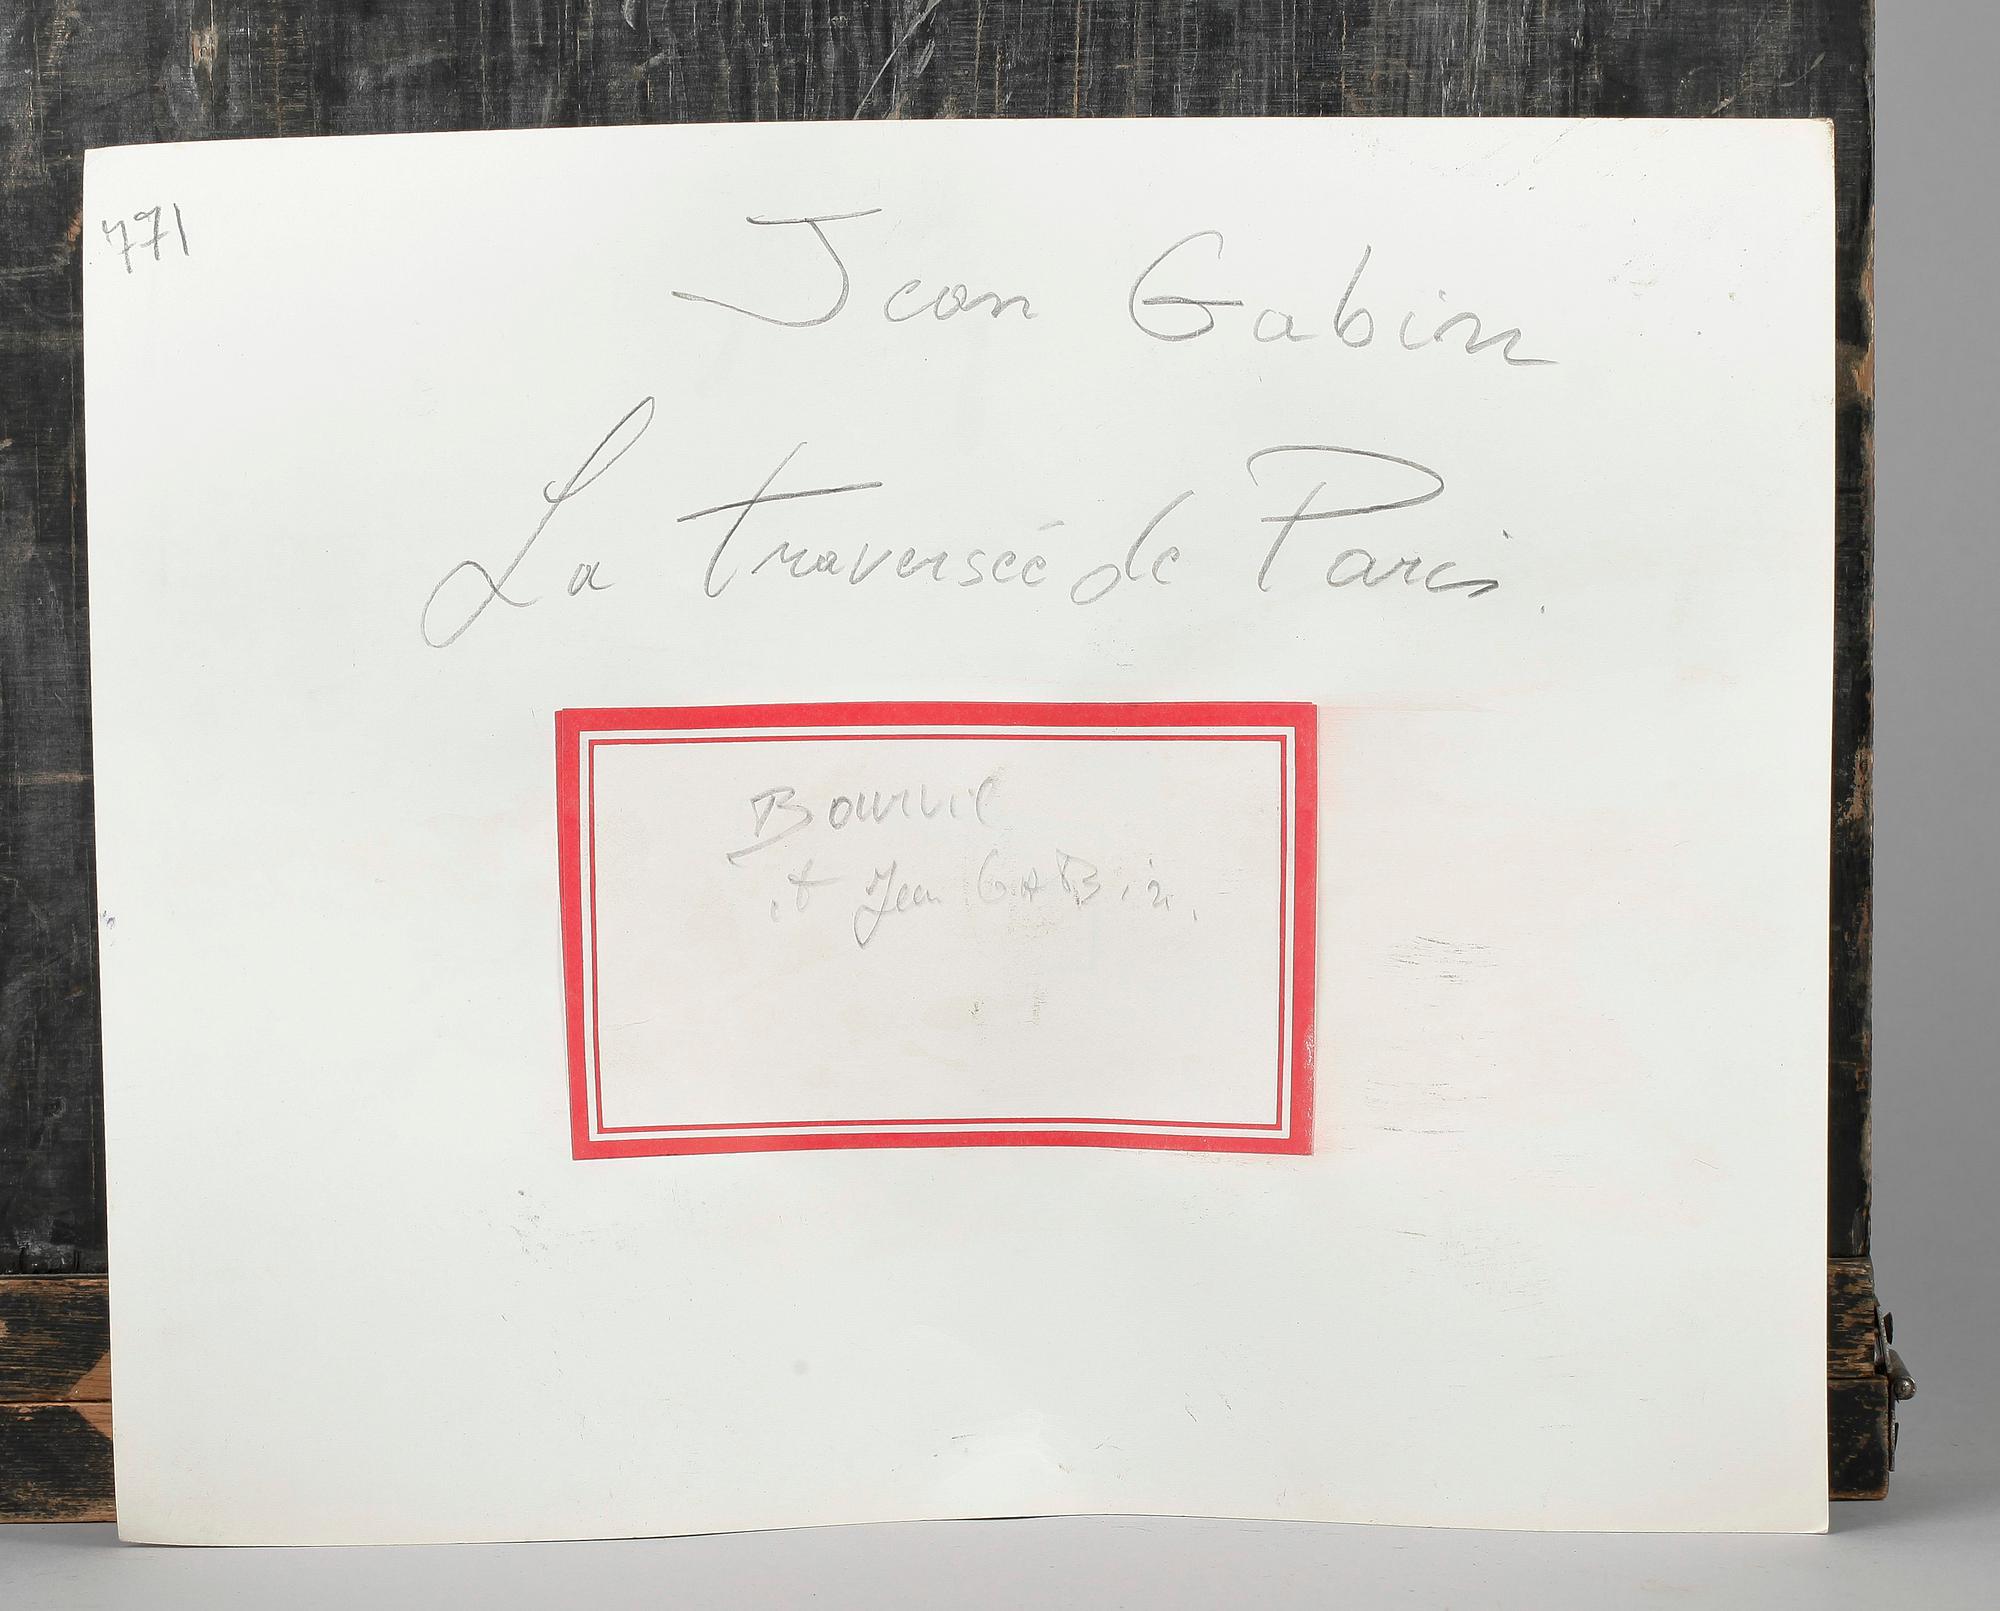 771
Jean Gabin
La traversée de Paris.
Bourvil
et Jean GABin.